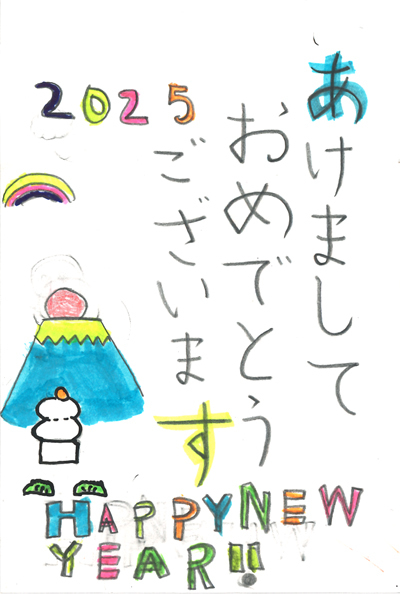 2025
あけまして
おめでとう
ございます
HAPPY NEW
YEAR!!